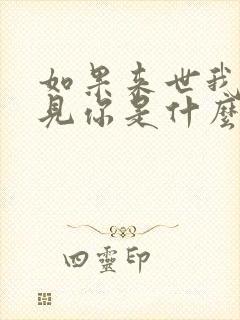 如果来世我
见你是什麽
四靈印